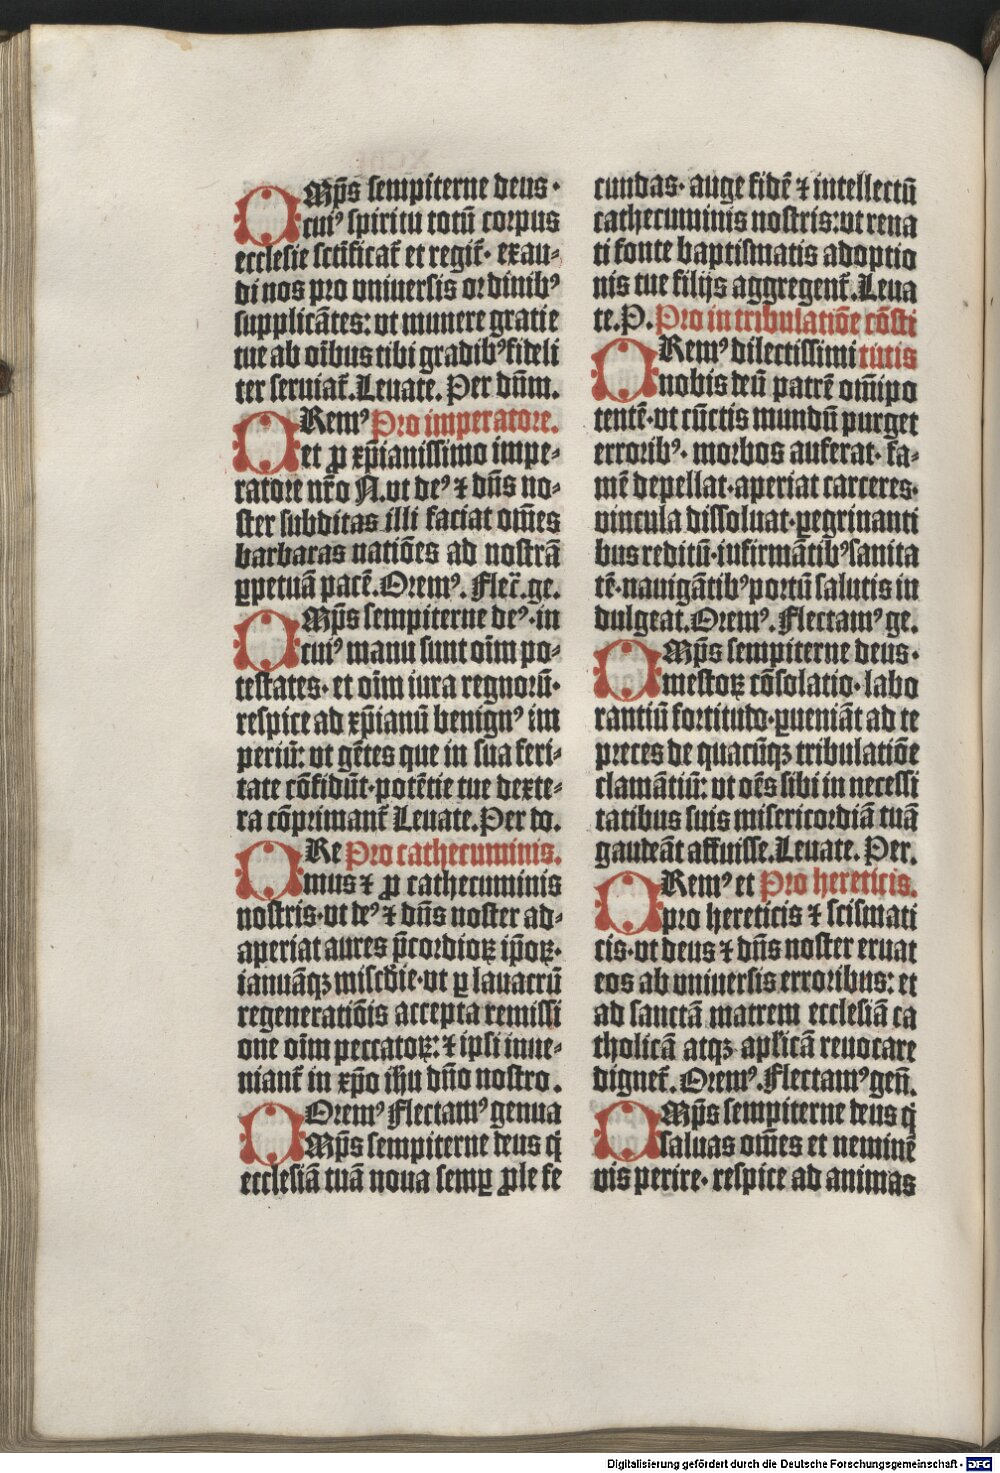 OMp̄s sempiterne deus·
cuiꝰ spiritu totū corpus
ecclesie sctīficat̄ et regit̄· exau⸗
di nos pro vniuersis ordinibꝰ
supplicātes: vt munere gratie
tue ab oībus tibi gradibꝰ fideli
ter seruiat̄. Leuate. Per dn̄m.
ORemꝰ Pro imperatore.
et ꝓ xp̄ianissimo impe⸗
ratore nr̄o N. vt deꝰ ⁊ dn̄s no⸗
ster subditas illi faciat om̄es
barbaras natiōes ad nostrā
ꝑpetuā pacē. Oremꝰ. Flec̄t. ge.
OMp̄s sempiterne deꝰ· in
cuiꝰ manu sunt oīm po⸗
testates· et oīm iura regnorū·
respice ad xp̄ianū benignꝰ im
periū: vt gētes que in sua feri⸗
tate cōfidūt· potētie tue dexte⸗
ra cōprimant̄ Leuate. Per do.
ORe Pro cathecuminis.
mus ⁊ ꝓ cathecuminis
nostris· vt deꝰ ⁊ dn̄s noster ad⸗
aperiat aures p̄cordioꝝ ip̄oꝝ·
ianuāqꝫ misc̄die· vt ꝑ lauacrū
regeneratiōis accepta remissi
one oīm peccatoꝝ: ⁊ ipsi inue⸗
niant̄ in xp̄o ih̄u dn̄o nostro.
Oremꝰ Flectamꝰ genua
OMp̄s sempiterne deus q̄
ecclesiā tuā noua semꝑ ꝓle fe
cundas· auge fidē ⁊ intellectū
cathecuminis nostris: vt rena
ti fonte baptismatis adoptio
nis tue filijs aggregent̄. Leua
te. P. Pro in tribulatiōe cōsti
ORemꝰ dilectissimi tutis
nobis deū patrē om̄ipo
tentē· vt cūctis mundū purget
erroribꝰ· morbos auferat· fa⸗
mē depellat· aperiat carceres·
vincula dissoluat· ꝑegrinanti
bus reditū· infirmātibꝰ sanita
tē· nauigātibꝰ portū salutis in
dulgeat. Oremꝰ. Flectamꝰ ge.
OMp̄s sempiterne deus·
mestoꝝ cōsolatio· labo
rantiū fortitudo· ꝑueniāt ad te
preces de quacūqꝫ tribulatiōe
clamātiū: vt oēs sibi in necessi
tatibus suis misericordiā tuā
gaudeāt affuisse. Leuate. Per.
ORemꝰ et Pro hereticis.
pro hereticis ⁊ scismati
cis· vt deus ⁊ dn̄s noster eruat
eos ab vniuersis erroribus: et
ad sanctā matrem ecclesiā ca
tholicā atqꝫ aplicā reuocare
dignet̄. Oremꝰ. Flectamꝰ gen̄.
OMp̄s sempiterne deus q̄
saluas om̄es et neminē
vis perire· respice ad animas
Digitalisierung gefördert durch die Deutsche Forschungsgemeinschaft - DFG